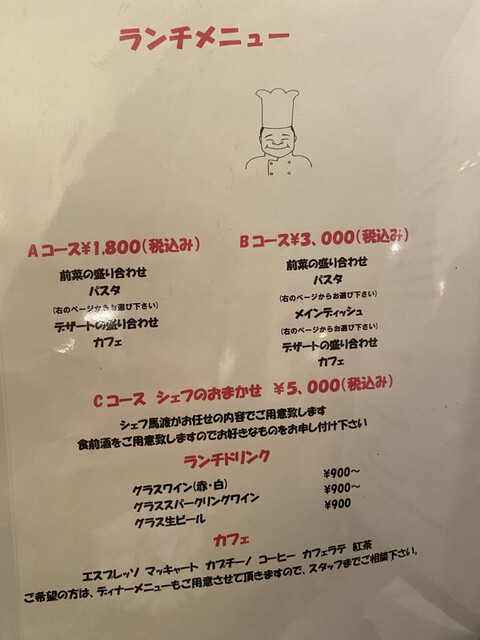 ランチメニュー
Aコース¥1.800(税込み)
前菜の盛り合わせ
パスタ
(右のページからお選び下さい)
デザートの盛り合わせ
カフェ
Bコース¥3、000(税込み)
前菜の盛り合わせ
パスタ
(右のページからお選び下さい)
メインディッシュ
(右のページからお選び下さい)
デザートの盛り合わせ
カフェ
Cコース シェフのおまかせ ¥5、000(税込み)
シェフ馬渡がお任せの内容でご用意致します
食前酒をご用意致しますのでお好きなものをお申し付け下さい
ランチドリンク
グラスワイン(赤・白) ¥900~
グラススパークリングワイン ¥900~
グラス生ビール ¥900
カフェ
エスプレッソ マッキャート カプチーノ コーヒー カフェラテ 紅茶
ご希望の方は、ディナーメニューもご用意させて頂きますので、スタッフまでご相談下さい。